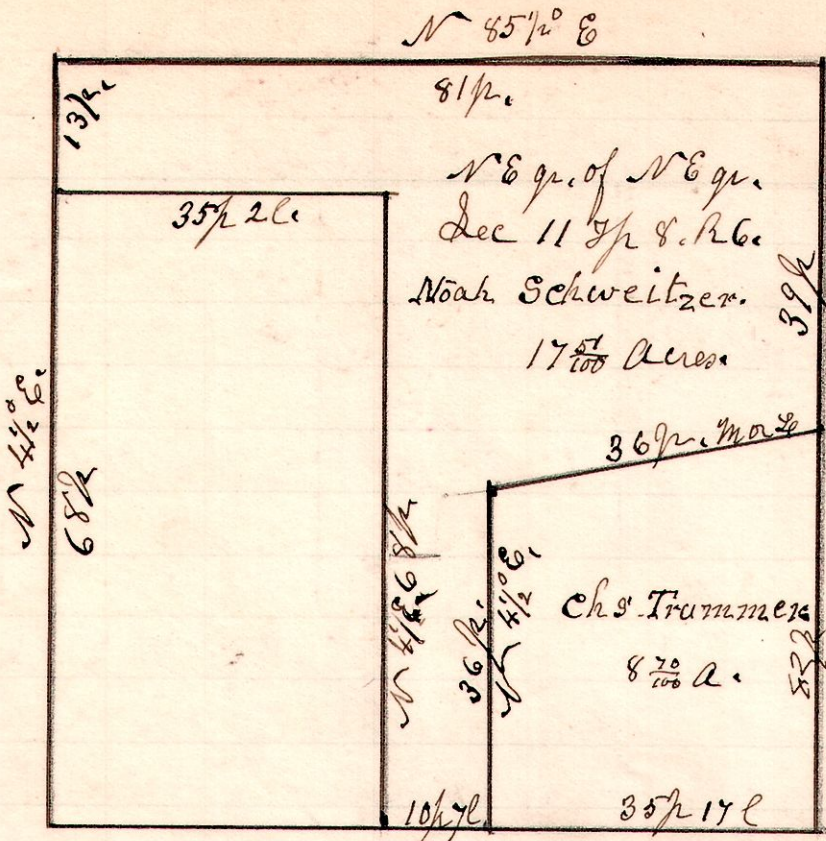 N 85½° E
81p.
13p.
N E qr. of N E qr.
35p 2l.
Sec 11 Tp 8. R6.
Noah Schweitzer.
39p
17 51/100 Acres.
N 4½° E.
68p
36p. M or L
N 4½° E 68p
36p.
N 4½° E.
Chs. Trummer
8 70/100 A.
10p 7l.
35p 17l